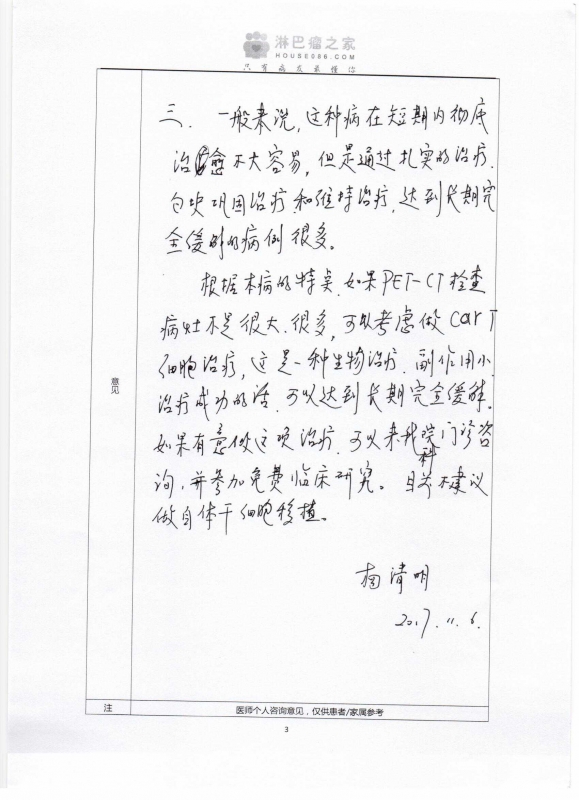 淋巴瘤之家
HOUSE086.COM
只有病友最懂你
三、一般来说,这种病在短期内彻底
治愈不大容易,但是通过扎实的治疗、
巩固治疗和维持治疗,达到长期完
全缓解的病例很多。
根据本病的特点,如果PET-CT检查
病灶不是很大、很多,可以考虑做carT
细胞治疗,这是一种生物治疗、副作用小、
治疗成功的话,可以达到长期完全缓解。
如果有意做这项治疗,可以来我院门诊咨
科
询,并参加免费临床研究。目前不建议
做自体干细胞移植。
清明
2017.11.6.
意见
注
医师个人咨询意见,仅供患者/家属参考
3